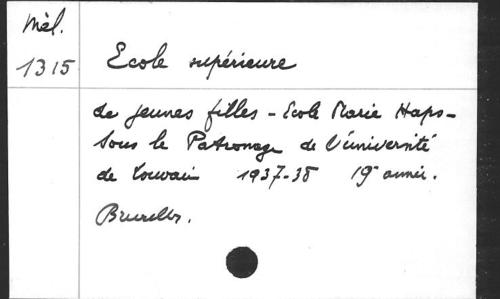 Mél.
1315
Ecole supérieure
de jeunes filles - Ecole Marie Haps -
Sous le Patronage de l'Université
de Louvain 1937-38 19e année.
Bruxelles.